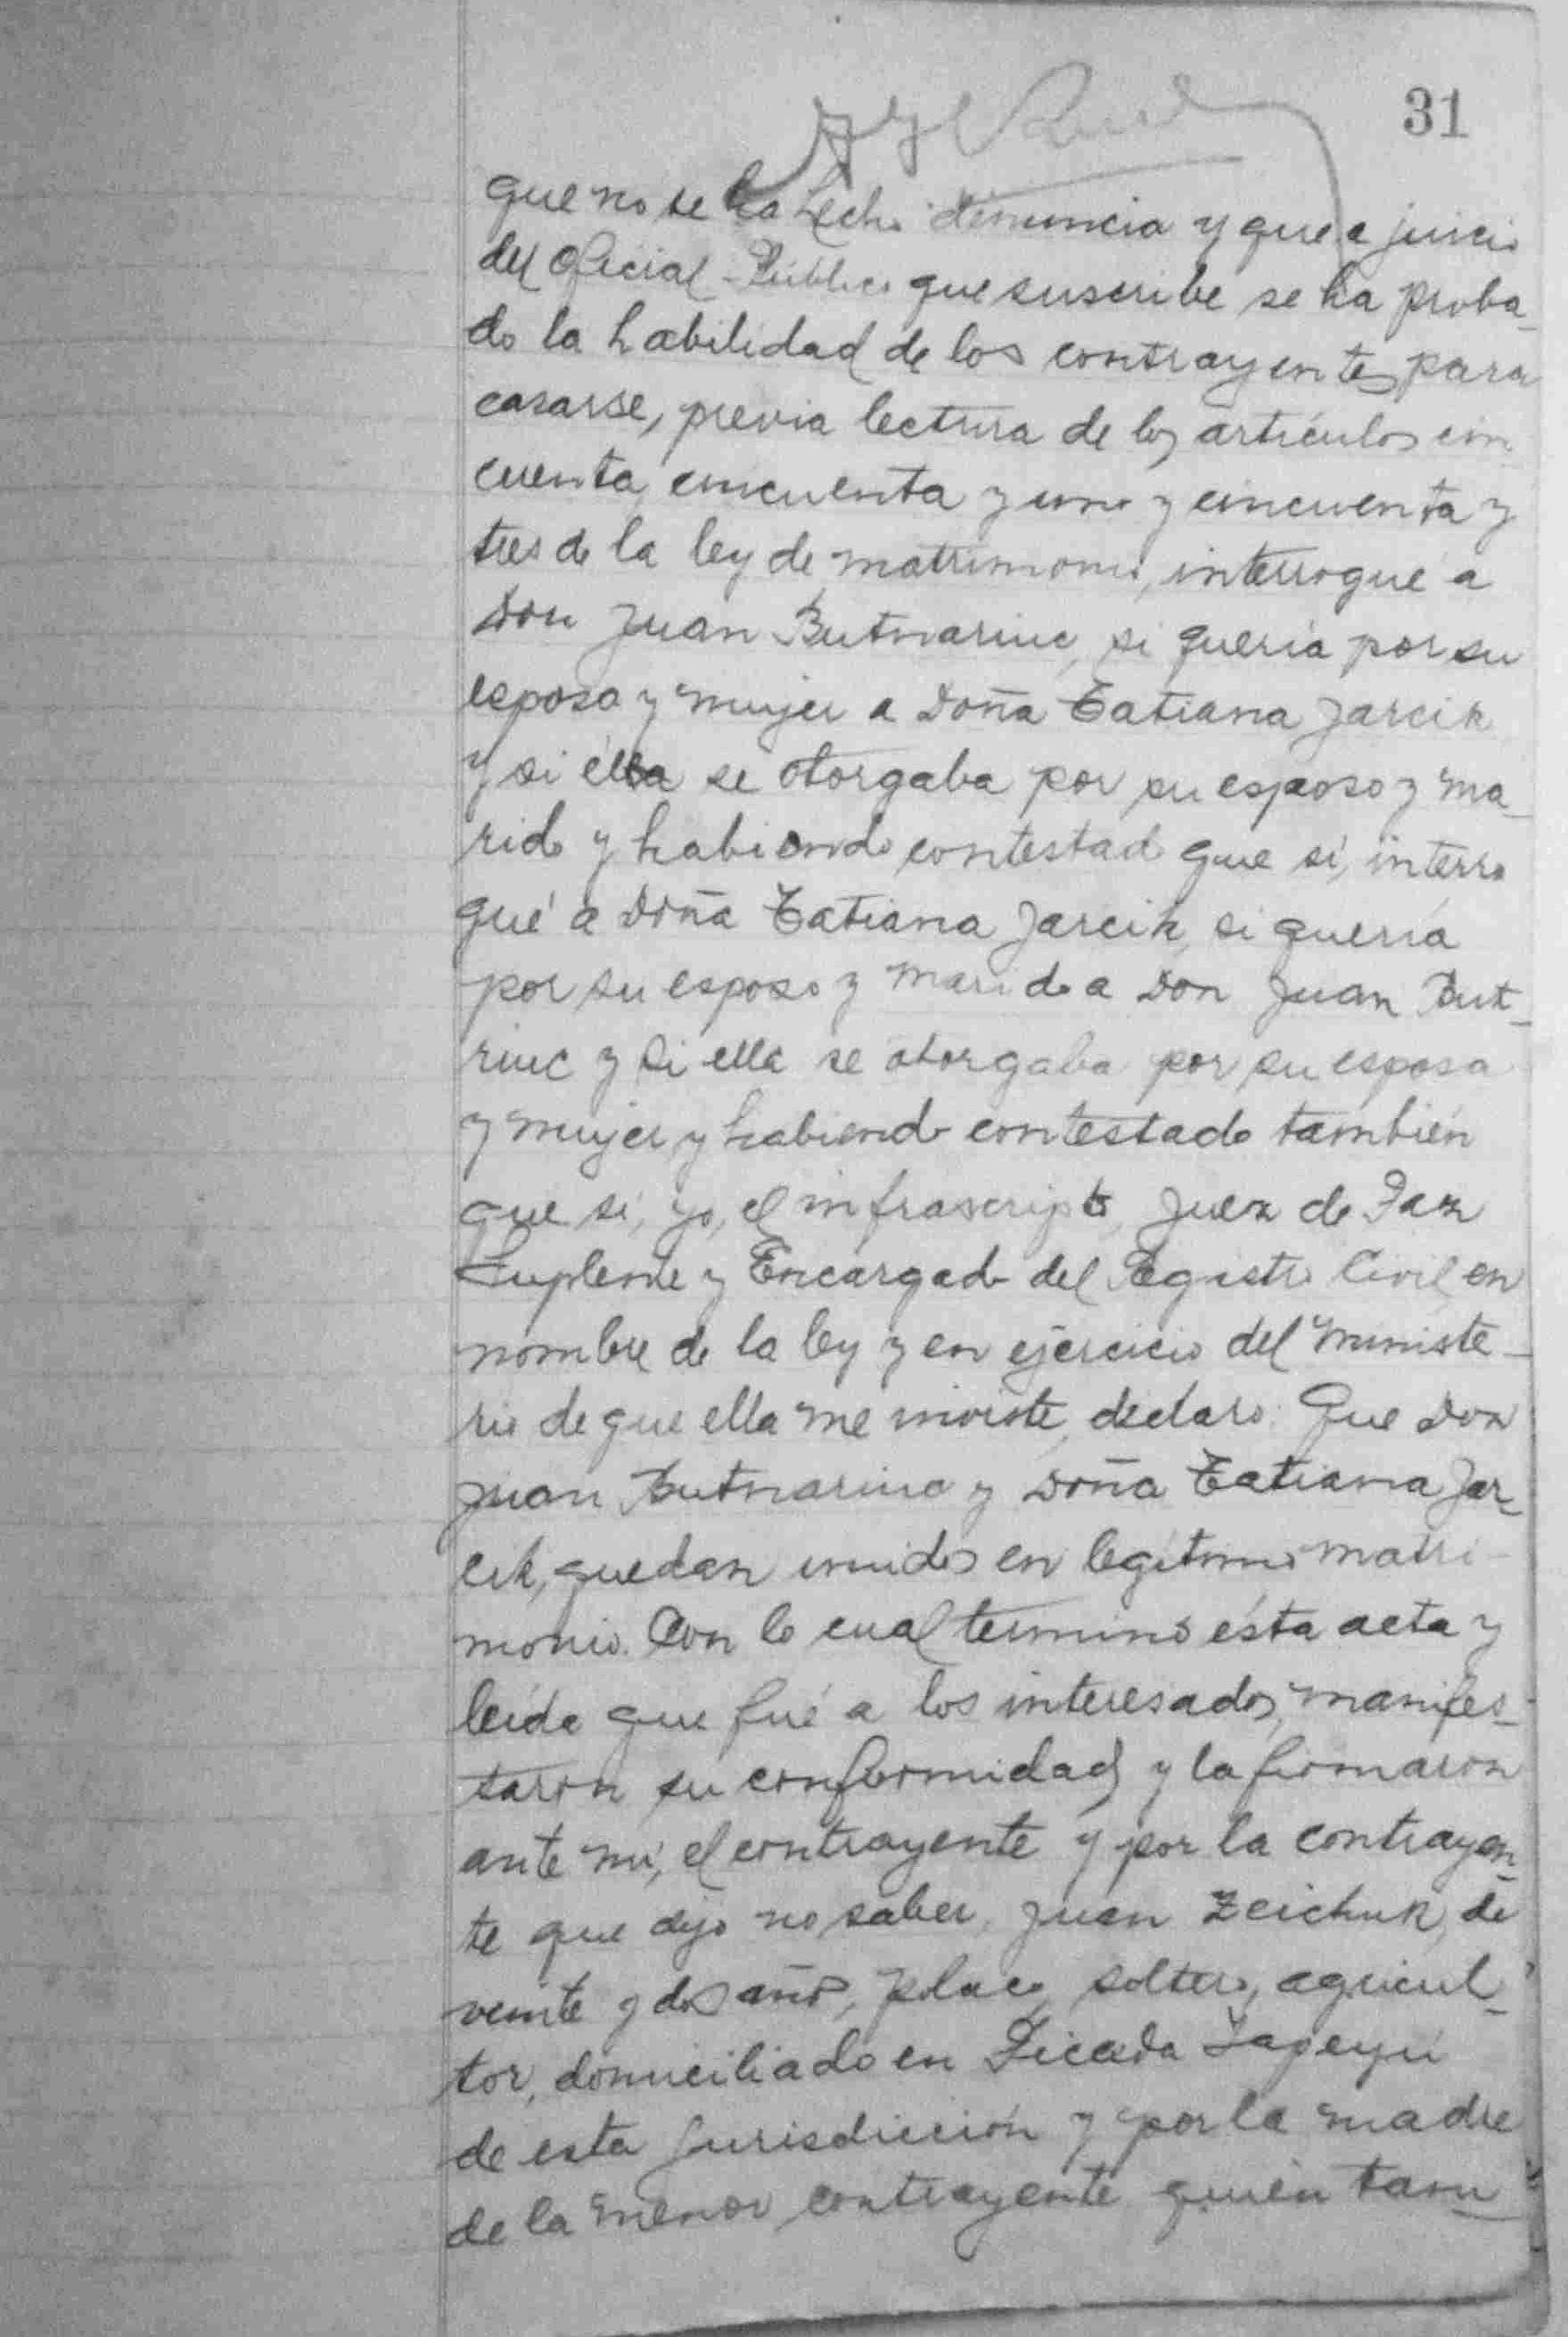 31
que no se ha hecho denuncia y que a juicio
del Oficial Público que suscribe se ha proba-
do la habilidad de los contrayentes para
casarse, previa lectura de los artículos cin
cuenta, cincuenta y uno y cincuenta y
tres de la ley de matrimonio, interrogué a
Don Juan Butnariuc, si quería por su
esposa y mujer a Doña Tatiana Jarcik
y si él se otorgaba por su esposo y ma-
rido y habiendo contestado que sí, interro
gué a Doña Tatiana Jarcik, si quería
por su esposo y marido a Don Juan But-
riuc y si ella se otorgaba por su esposa
y mujer y habiendo contestado también
que sí, yo, el infrascripto, Juez de Paz
Suplente y Encargado del Registro Civil, en
nombre de la ley y en ejercicio del ministe-
rio de que ella me inviste, declaro: Que Don
Juan Butnariuc y Doña Tatiana Jar-
cik, quedan unidos en legítimo matri-
monio. Con lo cual terminó ésta acta y
leída que fué a los interesados, manifes-
taron su conformidad y la firmaron
ante mí, el contrayente y por la contrayen-
te que dijo no saber, Juan Zeichuk, de
veinte y dos años, polaco, soltero, agricul-
tor, domiciliado en Picada Yapeyú
de esta Jurisdicción y por la madre
de la menor contrayente quién tam-